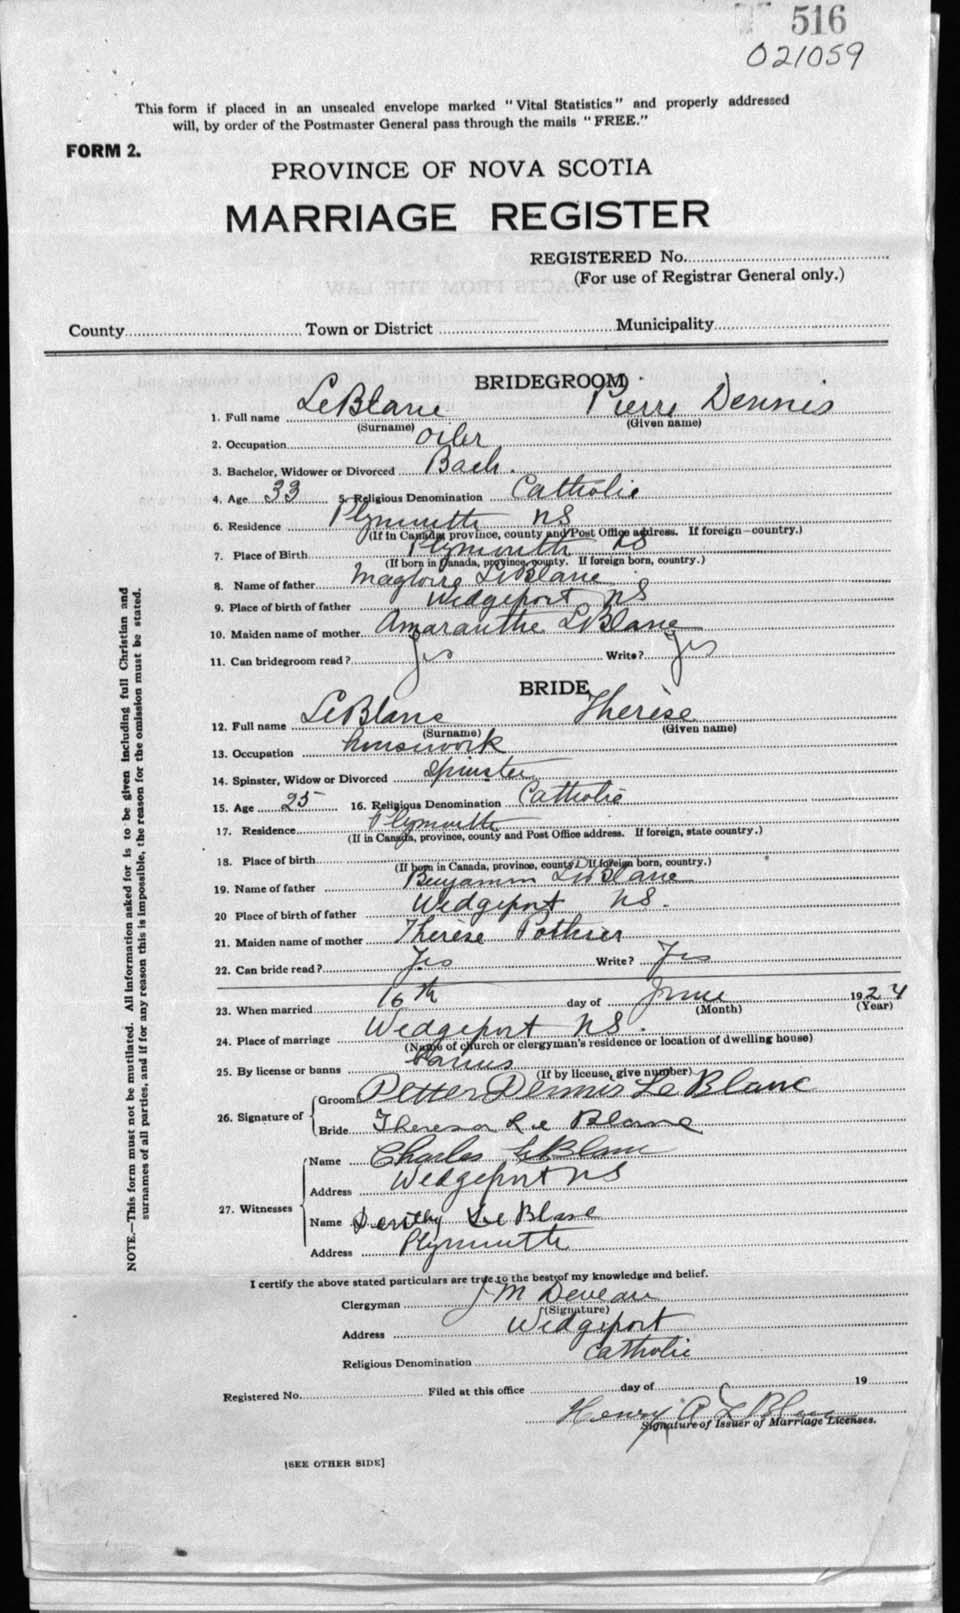 516
021059
This form if placed in an unsealed envelope marked "Vital Statistics" and properly addressed
will, by order of the Postmaster General pass through the mails "FREE."
FORM 2.
PROVINCE OF NOVA SCOTIA
MARRIAGE REGISTER
REGISTERED No.
(For use of Registrar General only.)
County Town or District Municipality
BRIDEGROOM
1. Full name LeBlanc Pierre Dennis
(Surname) (Given name)
2. Occupation Oiler
3. Bachelor, Widower or Divorced Bach.
4. Age 33 5. Religious Denomination Catholic
6. Residence Plymouth NS
(If in Canada, province, county and Post Office address. If foreign—country.)
7. Place of Birth Plymouth NS
(If born in Canada, province, county. If foreign born, country.)
8. Name of father Magloire LeBlanc
9. Place of birth of father Wedgeport NS
10. Maiden name of mother Amaranthe LeBlanc
11. Can bridegroom read? Yes Write? Yes
BRIDE
12. Full name LeBlanc Thérèse
(Surname) (Given name)
13. Occupation housework
14. Spinster, Widow or Divorced Spinster
15. Age 25 16. Religious Denomination Catholic
17. Residence Plymouth
(If in Canada, province, county and Post Office address. If foreign, state country.)
18. Place of birth
(If born in Canada, province, county. If foreign born, country.)
19. Name of father Benjamin LeBlanc
20 Place of birth of father Wedgeport NS.
21. Maiden name of mother Thérèse Pothier
22. Can bride read? Yes Write? Yes
23. When married 16th day of June 1924
(Month) (Year)
24. Place of marriage Wedgeport NS.
(Name of church or clergyman's residence or location of dwelling house)
25. By license or banns
(If by license, give number)
26. Signature of Groom Petter Dennis LeBlanc
Bride Theresa Le Blanc
27. Witnesses Name Charles LeBlanc
Address Wedgeport NS
Name Dorithy Le Blanc
Address Plymouth
I certify the above stated particulars are true to the best of my knowledge and belief.
Clergyman J M Deveau
(Signature)
Address Wedgeport
Religious Denomination Catholic
Registered No. Filed at this office day of 19
Henry A LeBlanc
Signature of Issuer of Marriage Licenses.
[SEE OTHER SIDE]
NOTE.—This form must not be mutilated. All information asked for is to be given including full Christian and
surnames of all parties, and if for any reason this is impossible, the reason for the omission must be stated.